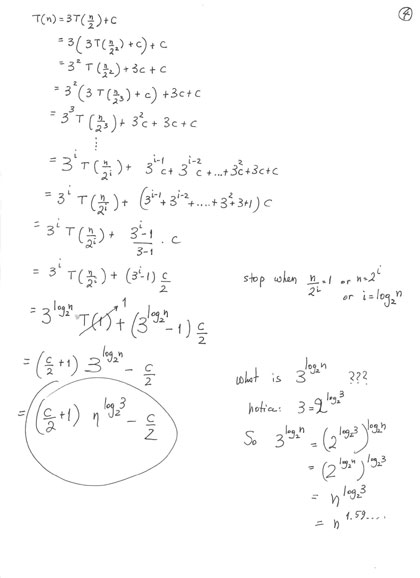 ④
T(n) = 3T(n/2) + c
= 3(3T(n/2²) + c) + c
= 3² T(n/2²) + 3c + c
= 3² (3T(n/2³) + c) + 3c + c
= 3³ T(n/2³) + 3²c + 3c + c
⋮
= 3ⁱ T(n/2ⁱ) + 3ⁱ⁻¹c + 3ⁱ⁻²c + ... + 3²c + 3c + c
= 3ⁱ T(n/2ⁱ) + (3ⁱ⁻¹ + 3ⁱ⁻² + .... + 3² + 3 + 1) c
= 3ⁱ T(n/2ⁱ) + (3ⁱ-1)/(3-1) · c
= 3ⁱ T(n/2ⁱ) + (3ⁱ-1) c/2
stop when n/2ⁱ = 1 or n = 2ⁱ
or i = log₂n
= 3^(log₂n) T(1) 1 + (3^(log₂n) - 1) c/2
= (c/2 + 1) 3^(log₂n) - c/2
= (c/2 + 1) n^(log₂3) - c/2
What is 3^(log₂n) ???
notice: 3 = 2^(log₂3)
So 3^(log₂n) = (2^(log₂3))^(log₂n)
= (2^(log₂n))^(log₂3)
= n^(log₂3)
= n^(1.59....)